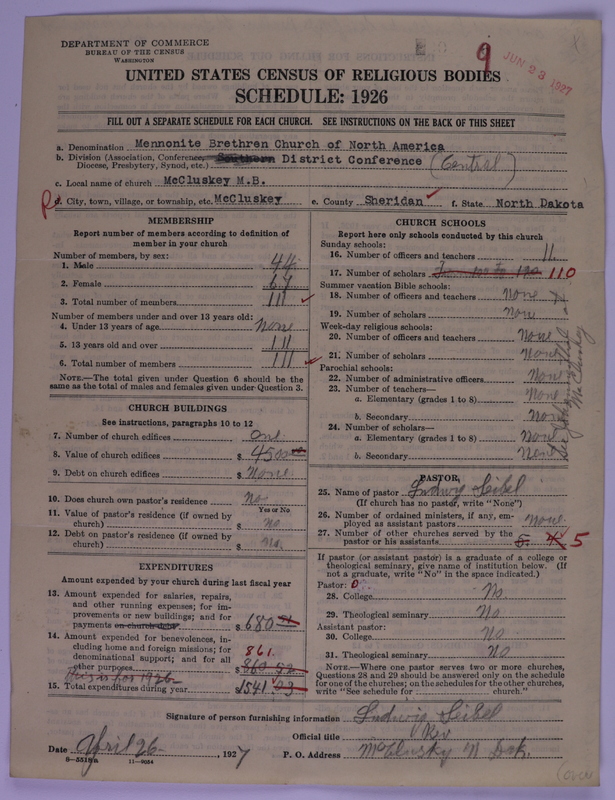 DEPARTMENT OF COMMERCE
BUREAU OF THE CENSUS
WASHINGTON
9
JUN 23 1927
UNITED STATES CENSUS OF RELIGIOUS BODIES
SCHEDULE: 1926
FILL OUT A SEPARATE SCHEDULE FOR EACH CHURCH. SEE INSTRUCTIONS ON THE BACK OF THIS SHEET
a. Denomination Mennonite Brethren Church of North America
b. Division (Association, Conference, Southern District Conference (Central)
Diocese, Presbytery, Synod, etc.)
c. Local name of church McCluskey M.B.
d. City, town, village, or township, etc. McCluskey e. County Sheridan f. State North Dakota
MEMBERSHIP
Report number of members according to definition of
member in your church
Number of members, by sex:
1. Male 44
2. Female 67
3. Total number of members 111
Number of members under and over 13 years old:
4. Under 13 years of age None
5. 13 years old and over 111
6. Total number of members 111
NOTE.—The total given under Question 6 should be the
same as the total of males and females given under Question 3.
CHURCH BUILDINGS
See instructions, paragraphs 10 to 12
7. Number of church edifices one
8. Value of church edifices $ 4500
9. Debt on church edifices $ None
10. Does church own pastor's residence No
Yes or No
11. Value of pastor's residence (if owned by
church) $ No
12. Debt on pastor's residence (if owned by
church) $ No.
EXPENDITURES
Amount expended by your church during last fiscal year
13. Amount expended for salaries, repairs,
and other running expenses; for im-
provements or new buildings; and for
payments on church debt $ 680
14. Amount expended for benevolences, in-
cluding home and foreign missions; for
denominational support; and for all 861
other purposes $ 860 52
This is for 1926
15. Total expenditures during year $ 1541.03
CHURCH SCHOOLS
Report here only schools conducted by this church
Sunday schools:
16. Number of officers and teachers 11
17. Number of scholars 110
Summer vacation Bible schools:
18. Number of officers and teachers None
19. Number of scholars None
Week-day religious schools:
20. Number of officers and teachers None
21. Number of scholars None
Parochial schools:
22. Number of administrative officers None
23. Number of teachers—
a. Elementary (grades 1 to 8) None
b. Secondary None
24. Number of scholars—
a. Elementary (grades 1 to 8) None
b. Secondary None
McClusky
PASTOR
25. Name of pastor Ludwig Seibel
(If church has no pastor, write "None")
26. Number of ordained ministers, if any, em-
ployed as assistant pastors None
27. Number of other churches served by the
pastor or his assistants 5
If pastor (or assistant pastor) is a graduate of a college or
theological seminary, give name of institution below. (If
not a graduate, write "No" in the space indicated.)
Pastor: 0
28. College No.
29. Theological seminary No
Assistant pastor:
30. College No
31. Theological seminary No
NOTE.—Where one pastor serves two or more churches,
Questions 28 and 29 should be answered only on the schedule
for one of the churches; on the schedules for the other churches,
write "See schedule for church."
Signature of person furnishing information Ludwig Seibel
Official title Rev
Date April 26, 1927 P. O. Address McClusky N Dak.
8-5518a 11-9034
(over